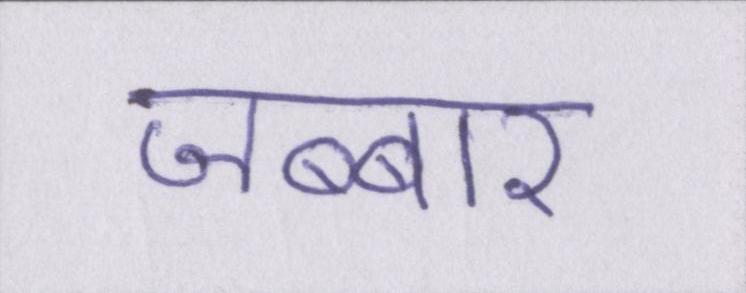 जब्बार